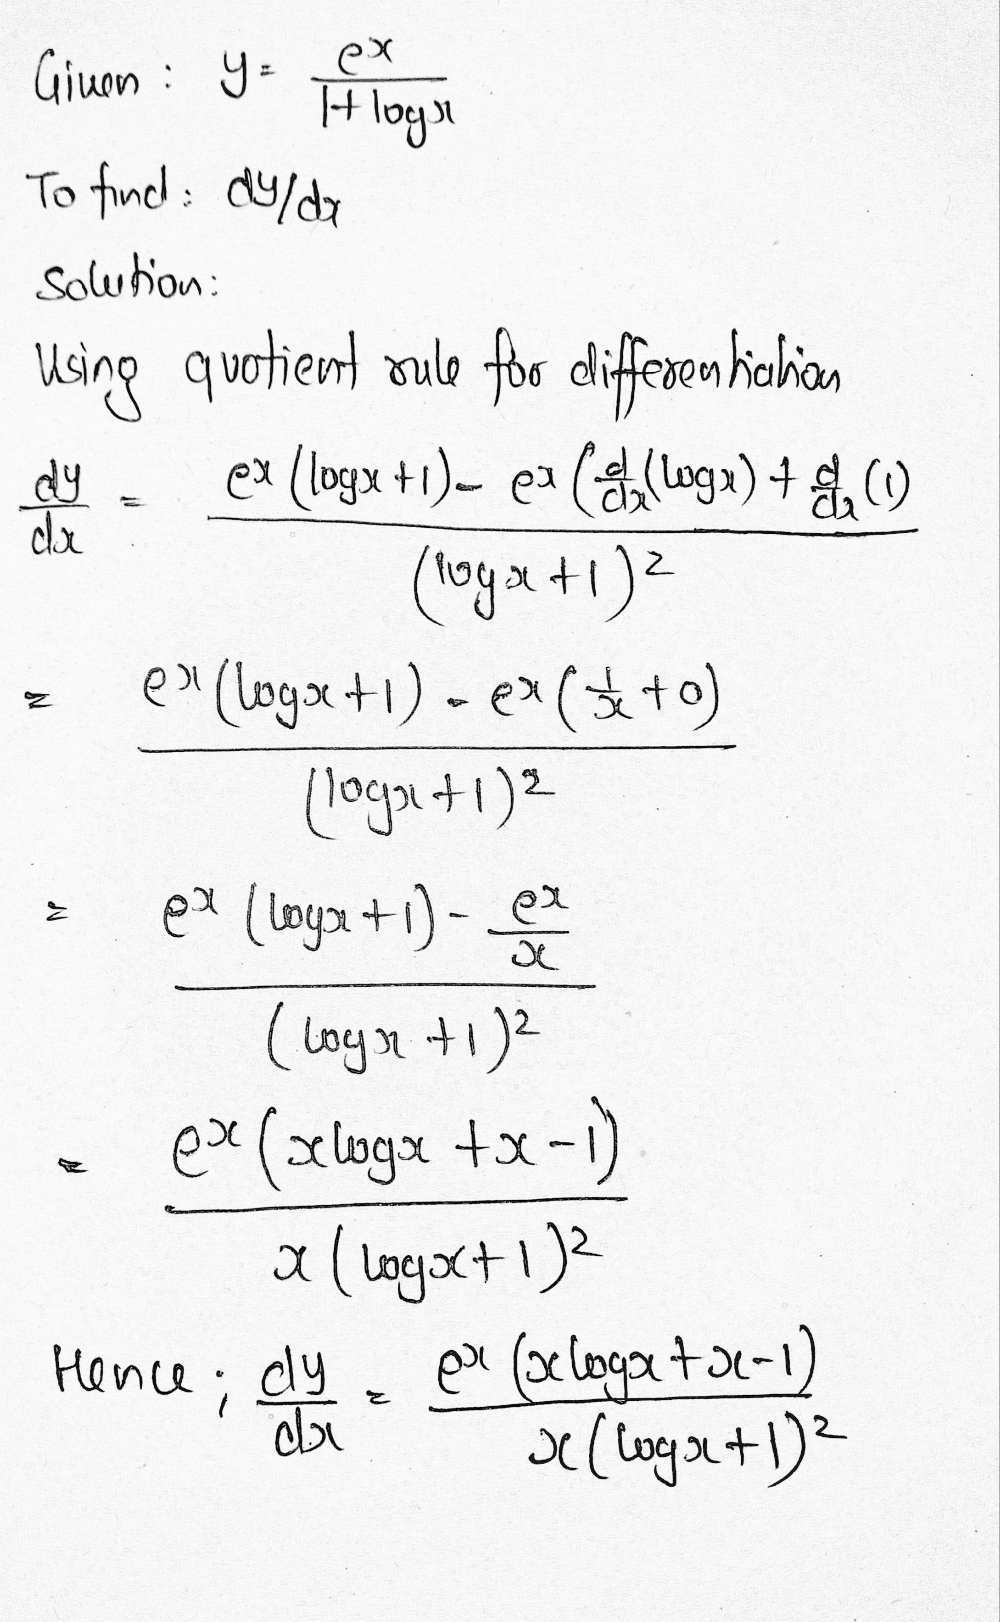 Given : y = e^x / 1 + log x
To find : dy/dx
Solution :
Using quotient rule for differentiation
dy/dx = e^x (log x + 1) - e^x (d/dx (log x) + d/dx (1) / (log x + 1)^2
= e^x (log x + 1) - e^x (1/x + 0) / (log x + 1)^2
= e^x (log x + 1) - e^x/x / (log x + 1)^2
= e^x (x log x + x - 1) / x (log x + 1)^2
Hence ; dy/dx = e^x (x log x + x - 1) / x (log x + 1)^2